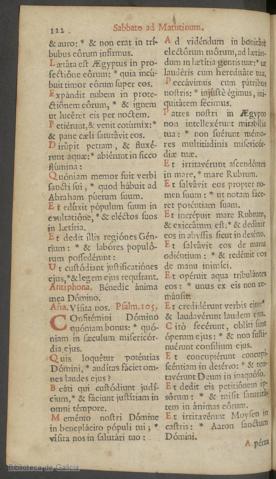 112 Sabbato ad Matutinum.
& auro: * & non erat in tri-
bubus eórum infírmus.
Lætáta est Ægyptus in pro-
fectióne eórum: * quia incú-
buit timor eórum super eos.
Expándit nubem in prote-
ctiónem eórum, * & ignem
ut lucéret eis per noctem.
Petiérunt, & venit cotúrnix: *
& pane cœli saturávit eos.
Dirúpit petram, & fluxé-
runt aquæ: * abiérunt in sicco
flúmina:
Quóniam memor fuit verbi
sancti sui, * quod hábuit ad
Abraham púerum suum.
Et edúxit pópulum suum in
exultatióne, * & eléctos suos
in lætítia.
Et dedit illis regiónes Gén-
tium: * & labóres populó-
rum possedérunt:
Ut custódiant justificatiónes
ejus, * & legem ejus requírant.
Antíphona. Bénedic ánima
mea Dómino.
Aña. Vísita nos. Psalm. 105.
Confitémini Dómino
quóniam bonus: * quó-
niam in sæculum misericór-
dia ejus.
Quis loquétur poténtias
Dómini, * audítas fáciet om-
nes laudes ejus?
Beáti qui custódiunt judí-
cium, * & fáciunt justítiam in
omni témpore.
Meménto nostri Dómine
in beneplácito pópuli tui: *
vísita nos in salutári tuo:
Ad vidéndum in bonitáte
electórum tuórum, ad lætán-
dum in lætítia gentis tuæ: * ut
laudéris cum hereditáte tua.
Peccávimus cum pátribus
nostris: * injústè égimus, ini-
quitátem fécimus.
Patres nostri in Ægypto
non intellexérunt mirabília
tua: * non fuérunt mémo-
res multitúdinis misericór-
diæ tuæ.
Et irritavérunt ascendéntes
in mare, * mare Rubrum.
Et salvávit eos propter no-
men suum: * ut notam fáce-
ret poténtiam suam.
Et incrépuit mare Rubrum,
& exsiccátum est: * & dedúxit
eos in abyssis sicut in desérto.
Et salvávit eos de manu
odiéntium: * & redémit eos
de manu inimíci.
Et opéruit aqua tribulántes
eos: * unus ex eis non re-
mánsit.
Et credidérunt verbis ejus: *
& laudavérunt laudem ejus.
Citò fecérunt, oblíti sunt
óperum ejus: * & non susti-
nuérunt consílium ejus.
Et concupiérunt concupi-
scéntiam in desérto: * & ten-
tavérunt Deum in inaquóso.
Et dedit eis petitiónem ip-
sórum: * & misit saturitá-
tem in ánimas eórum.
Et irritavérunt Moysen in
castris: * Aaron sanctum
Dómini.
Apérta
Biblioteca de Galicia